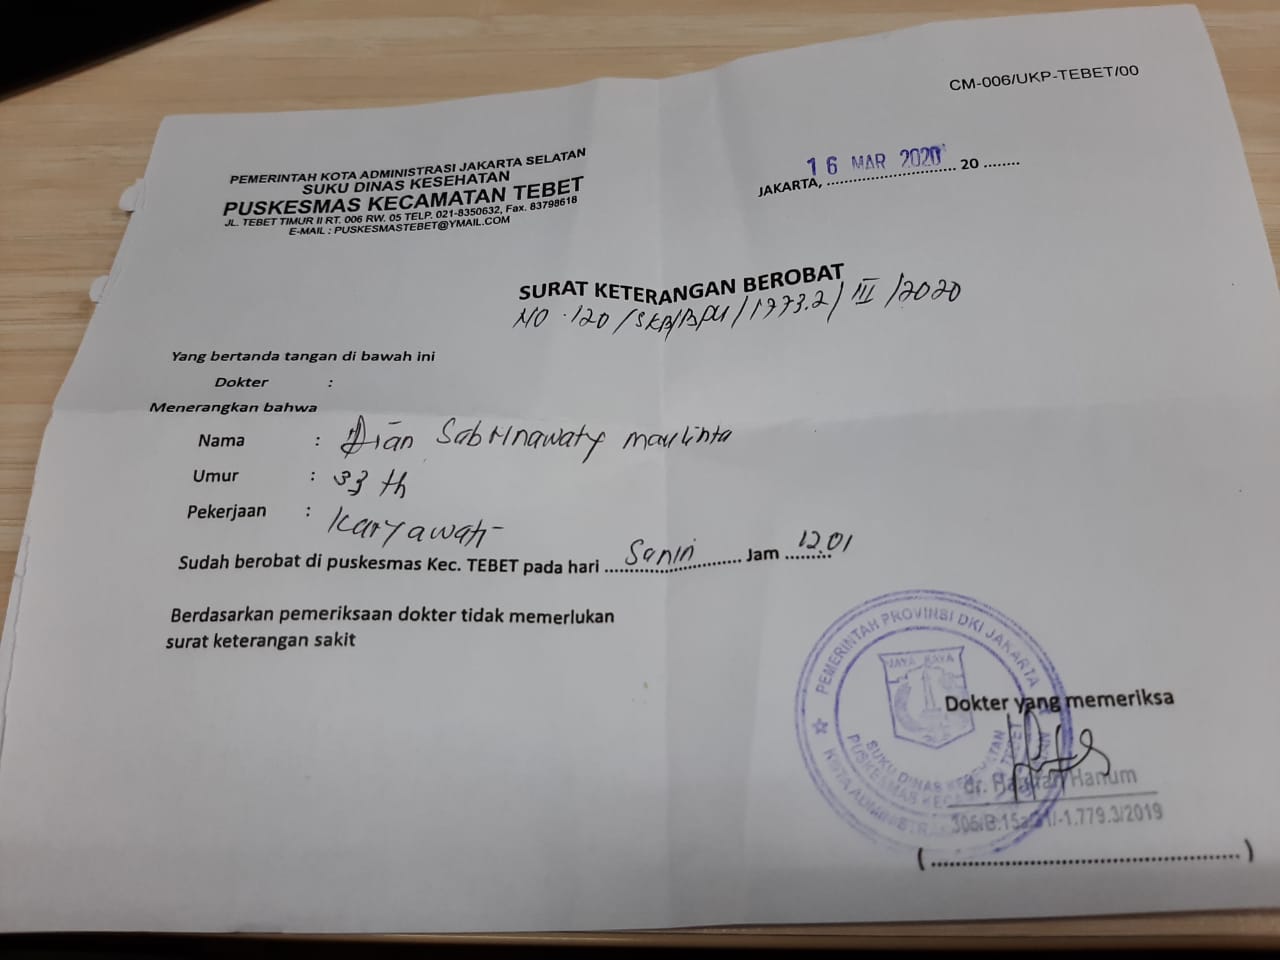 CM-006/UKP-TEBET/00
PEMERINTAH KOTA ADMINISTRASI JAKARTA SELATAN
SUKU DINAS KESEHATAN
PUSKESMAS KECAMATAN TEBET
JL. TEBET TIMUR II RT. 006 RW. 05 TELP. 021-8350632, Fax. 83798618
E-MAIL : PUSKESMASTEBET@YMAIL.COM
16 MAR 2020
JAKARTA, .............................. 20 ........
SURAT KETERANGAN BEROBAT
NO .120/SKB/BPU/1.773.2/III/2020
Yang bertanda tangan di bawah ini
Dokter :
Menerangkan bahwa
Nama : Dian Sabrinawaty Maulinta
Umur : 33 th
Pekerjaan : Karyawati
Sudah berobat di puskesmas Kec. TEBET pada hari Senin Jam 12.01
Berdasarkan pemeriksaan dokter tidak memerlukan
surat keterangan sakit
PEMERINTAH PROVINSI DKI JAKARTA
JAYA RAYA
SUKU DINAS KESEHATAN
PUSKESMAS KECAMATAN TEBET
KOTA ADMINISTRASI
Dokter yang memeriksa
dr. Hanum
/-1.779.3/2019
(..................................................)